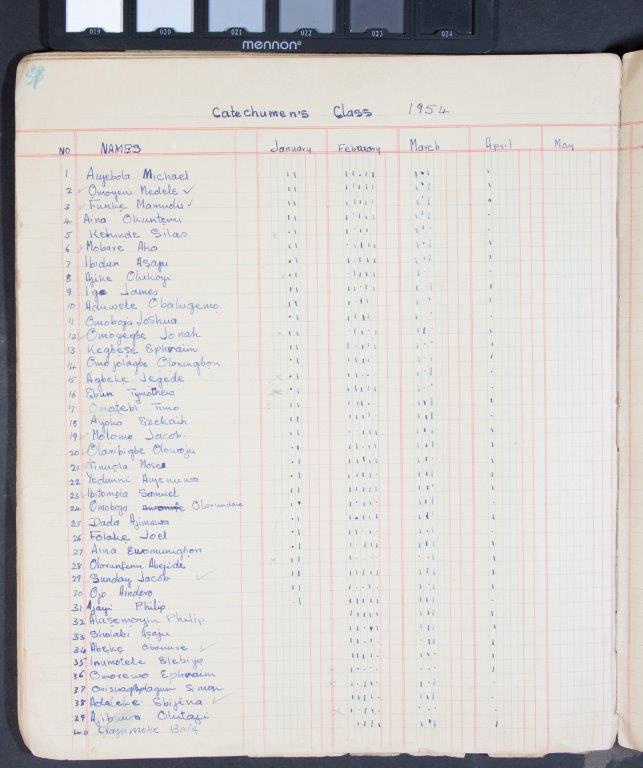 019 020 021 022 023 024
mennon
58
Catechumen's Class 1954
NO NAMES January February March April May
1 Michael
2 Omoyeni Medele ✓
3 Funke Mamudu ✓
4 Aina Okuntemi
5 Kehinde Silas
6 Mobare Aka
7 Ibidun Asapu
8 Ajike Olukoyi
9 Ige James
10 Aduwele Obalugemo
11 Omoboja Joshua
12 Omoyegbe Jonah
13 Kegbese Ephraim
14 Omojolagbe Olorungbon
15 Agbeke Jegede
16 Ebun Tymothew
17 Omotebi Timo
18 Ayoka Ezekaih
19 Molomo Jacob.
20 Olaribigbe Olowoju
21 Tinuola Moses
22 Yedunni
23 Ibitomola Samuel
24 Omoboja Olorundare
25 Dada Ajimowa
26 Folake Joel
27 Aina Ewomunigbon
28 Olorunfemi Abejide
29 Sunday Jacob ✓
30 Ojo Aindero
31 Ajayi Philip
32 Alasemoyin Philip
33 Sholabi Asapu
34 Abeke
35 Inumotele Elebiyo
36 Omorewo Ephraim
37 Simon
38 Adeleke Ebijena ✓
39 Ajibuwo Olutayi
40 Bale